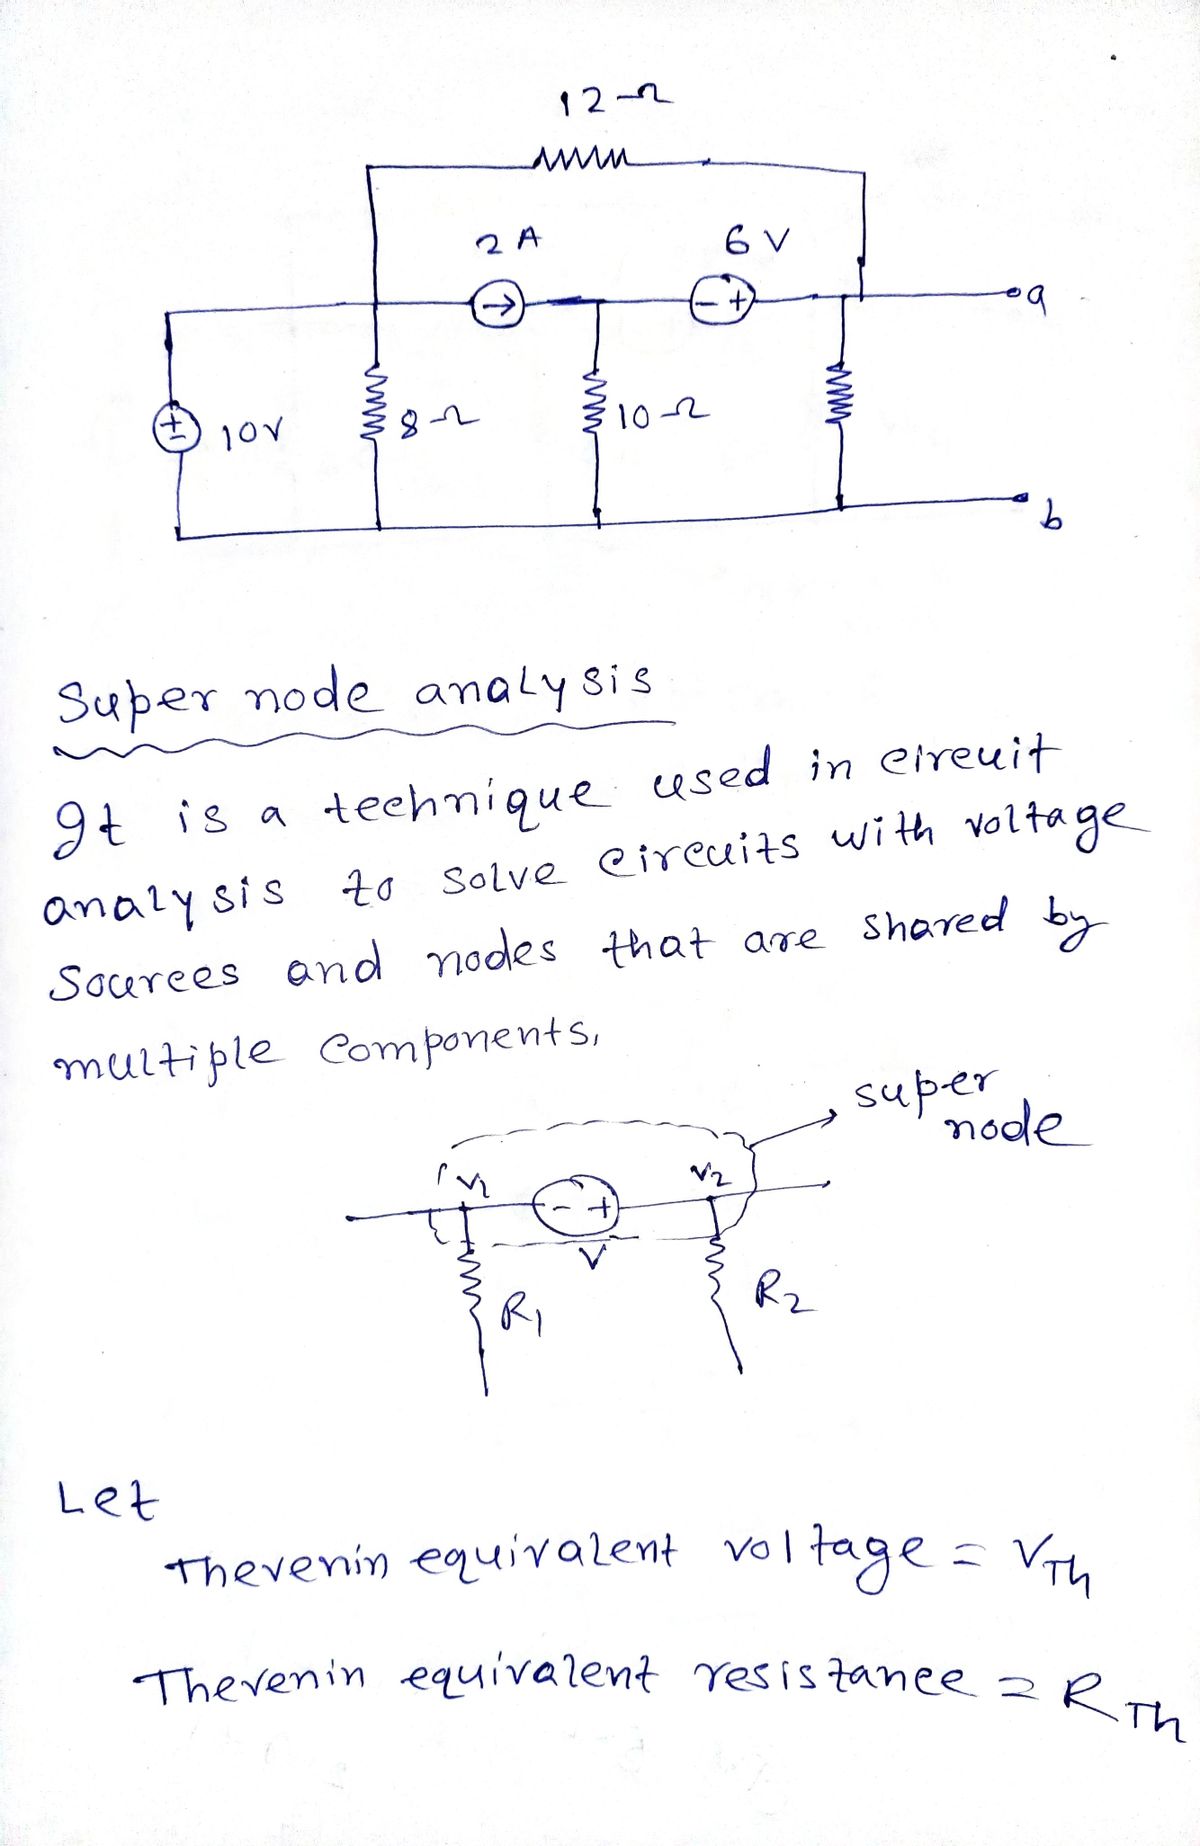 12 Ω
2 A
6 V
a
+ -
10V
8 Ω
10 Ω
b
Super node analysis
It is a technique used in circuit
analysis to solve circuits with voltage
sources and nodes that are shared by
multiple components,
super
node
V1
V2
- +
V
R1
R2
Let
Thevenin equivalent voltage = VTh
Thevenin equivalent resistance = RTh